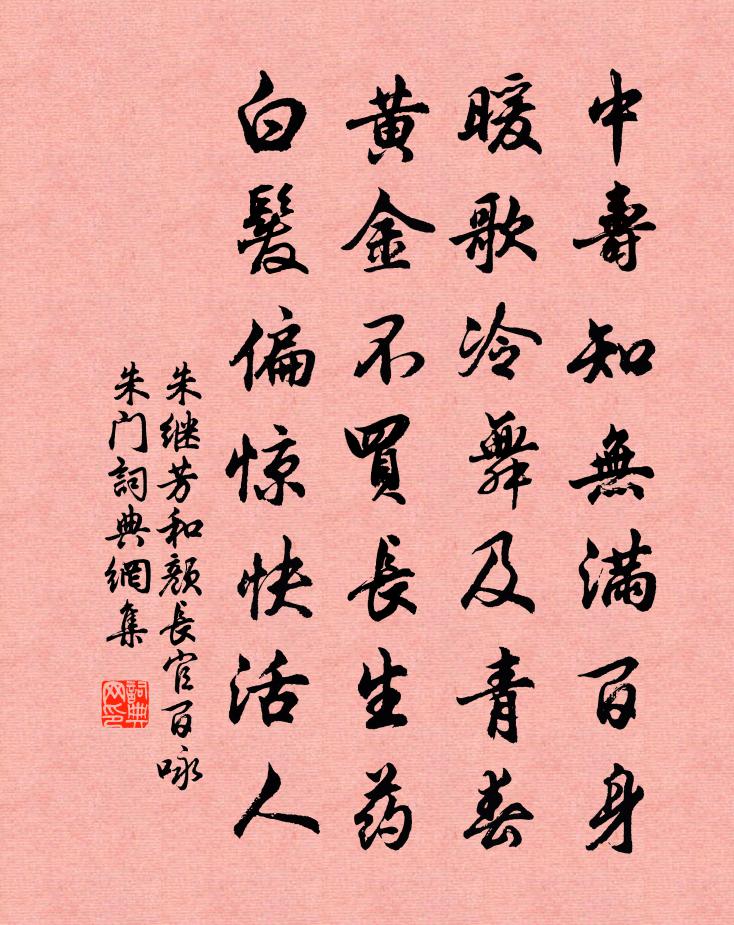 中壽知無滿百身
暖歌冷舞及青春
黃金不買長生药
白髮偏惊快活人
朱继芳和顏長官百咏
朱门詞典網集
詞典网印